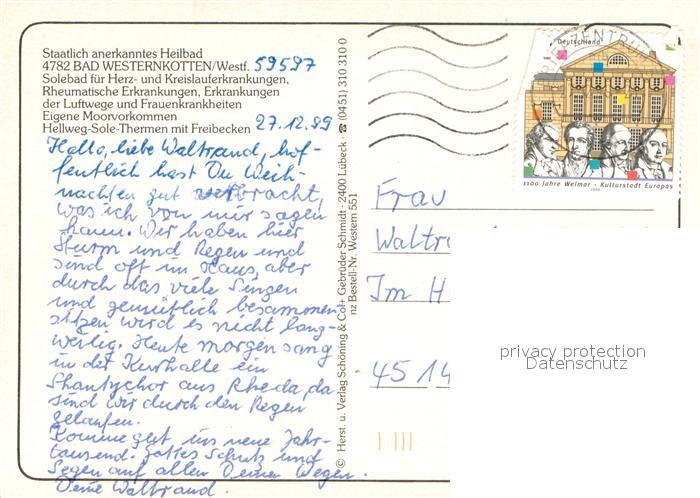 Staatlich anerkanntes Heilbad
4782 BAD WESTERNKOTTEN/Westf. 59597
Solebad für Herz- und Kreislauferkrankungen,
Rheumatische Erkrankungen, Erkrankungen
der Luftwege und Frauenkrankheiten
Eigene Moorvorkommen
Hellweg-Sole-Thermen mit Freibecken 27.12.99
Hallo, liebe Waltraud, hof-
fentlich hast Du Weih-
nachten gut verbracht,
was ich von mir sagen
kann. Wir haben hier
Sturm und Regen und
sind oft im Haus, aber
durch das viele Singen
und gemütlich beisammen
sitzen wird es nicht lang-
weilig. Heute morgen sang
in der Kurhalle ein
Shantychor aus Rheda, da
sind wir durch den Regen
gelaufen.
Komme gut ins neue Jahr-
tausend. Gottes Schutz und
Segen auf allen Deinen Wegen.
Deine Waltraud.
© Herst. u. Verlag Schöning & Co + Gebrüder Schmidt · 2400 Lübeck · ☎ (0451) 310 310 0
nz Bestell-Nr. Western 551
Deutschland
1100 Jahre Weimar · Kulturstadt Europas
1999
BRIEFZENTRUM
Frau
Waltr
Im H
4514
privacy protection
Datenschutz